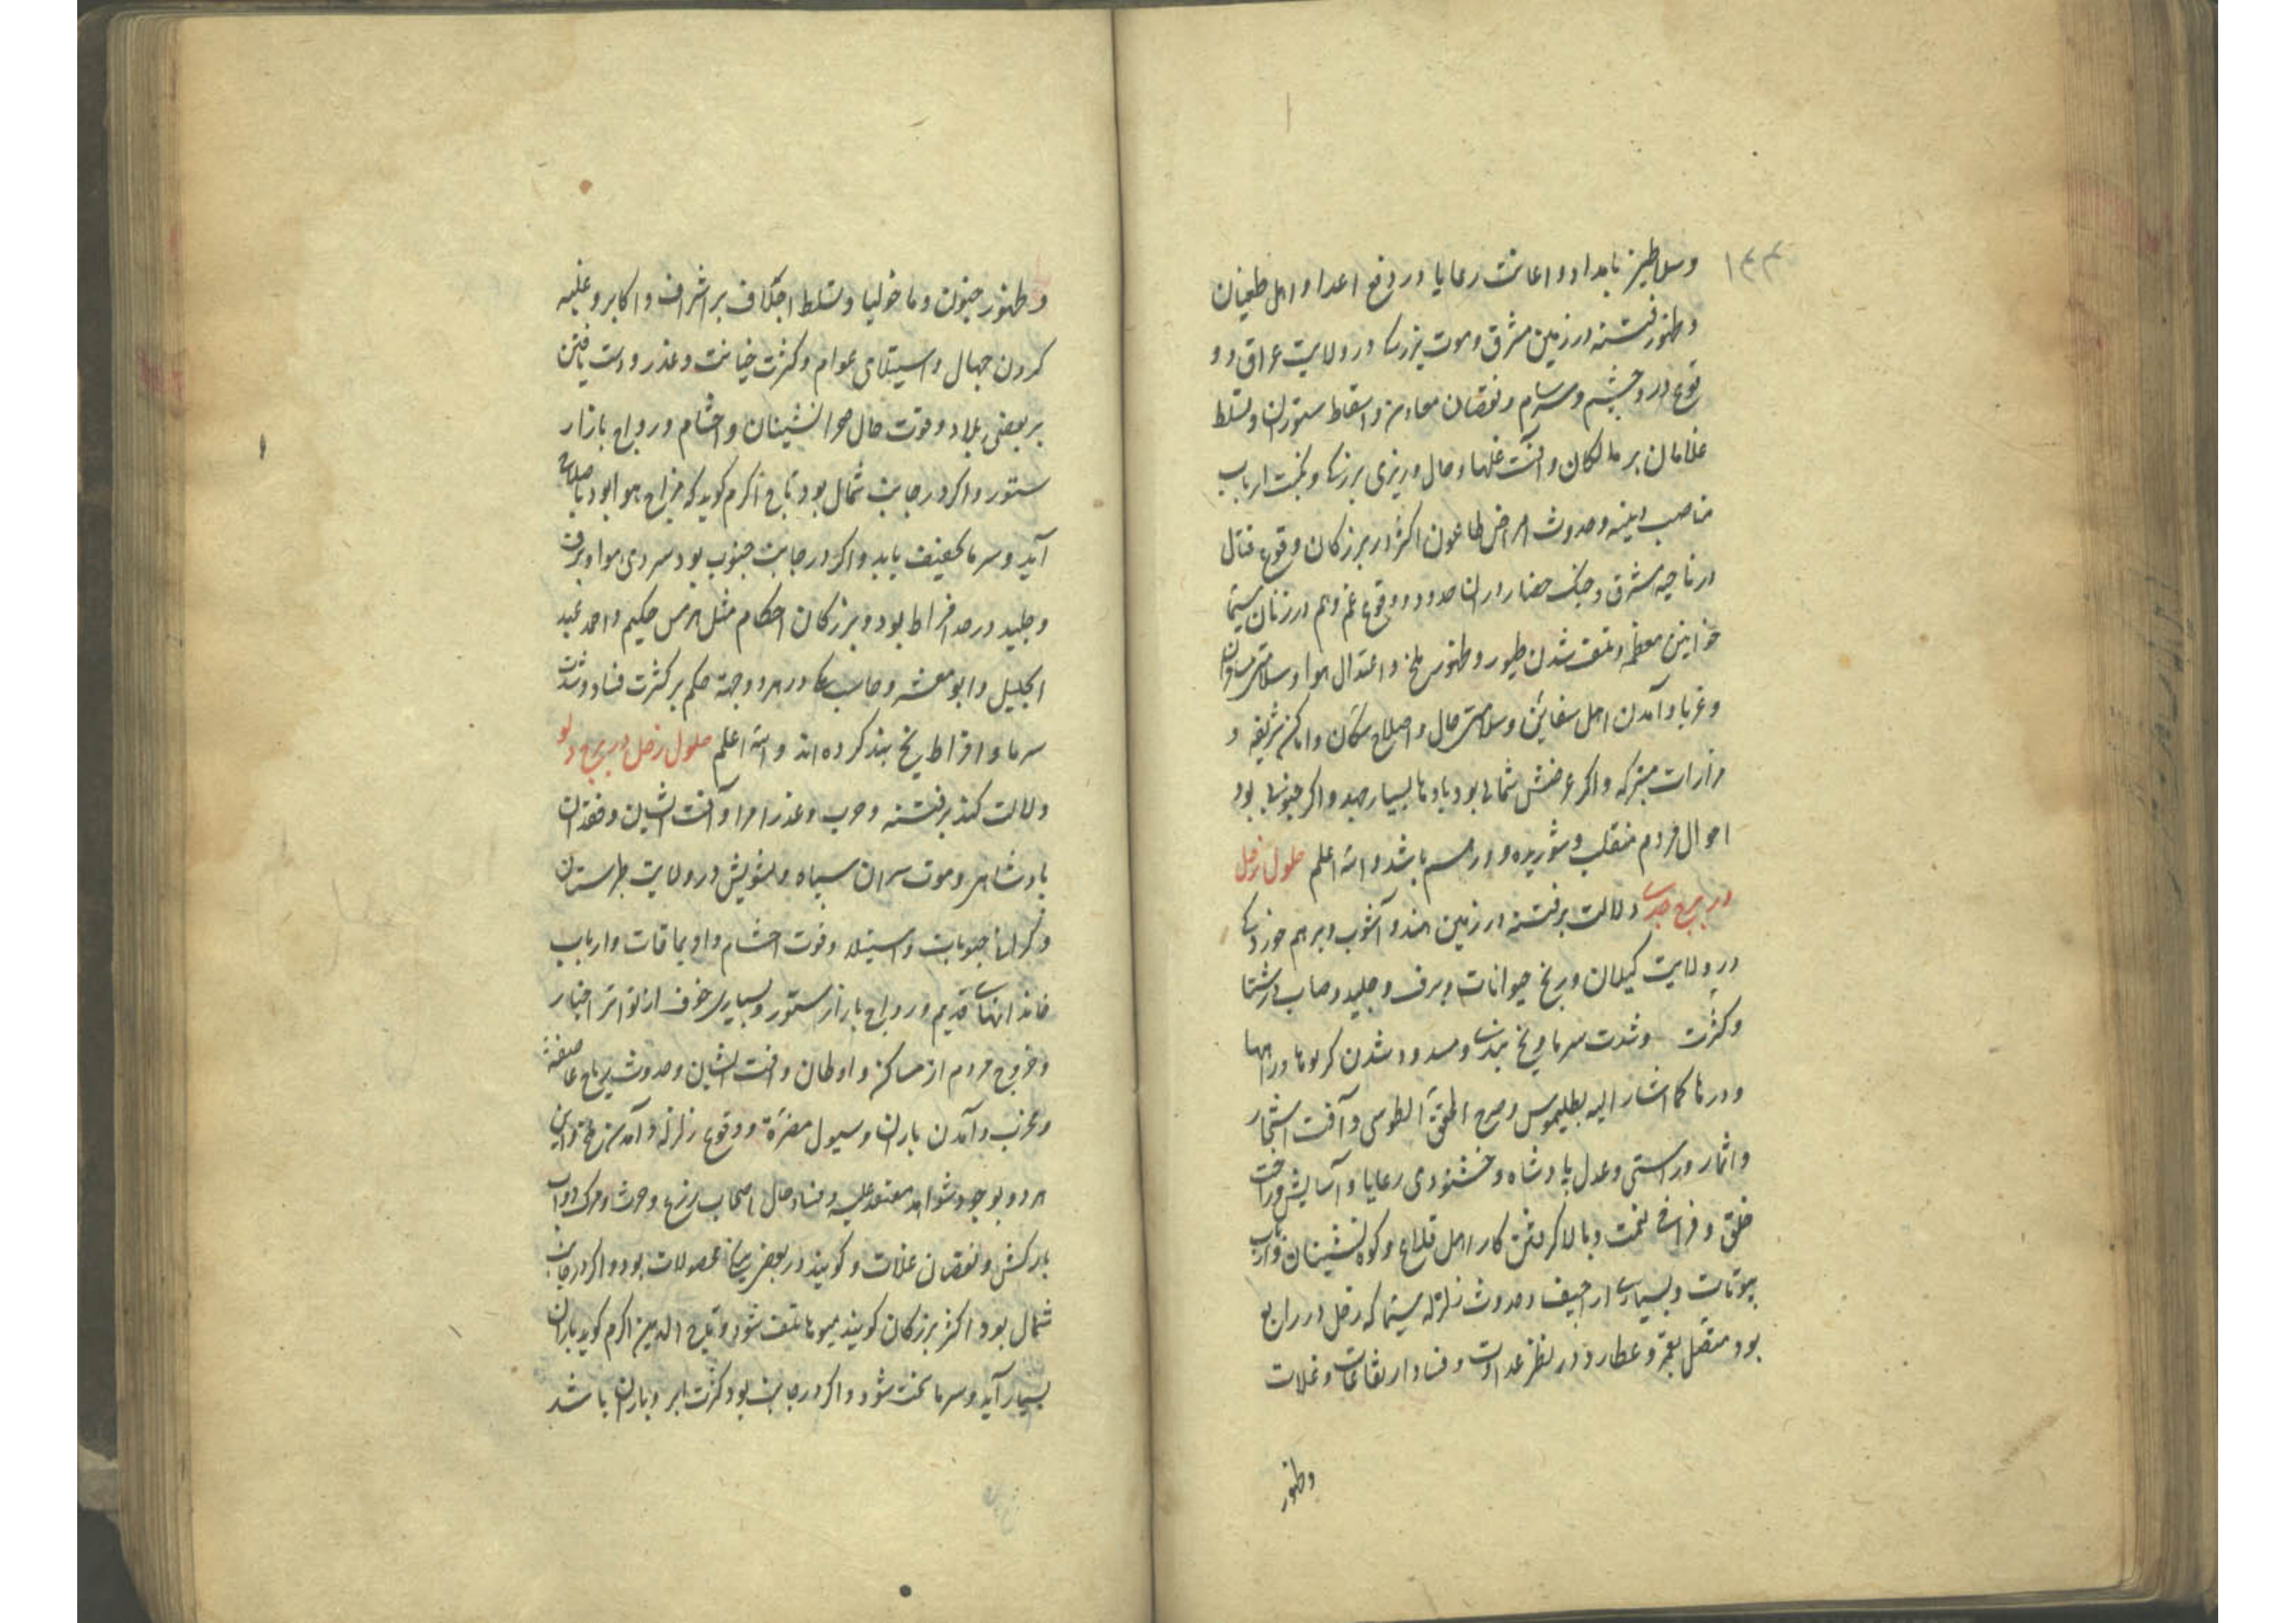 ۱۳۴
وسلاطین بامداد و اعانت رعایا در دفع اعدا و اهل طغیان
و ظهور فتنه در زمین مشرق و موت بزرکان در ولایت عراق و و
قوع درد چشم و سرسام و نقصان معادن و اسقاط ستوران و تسلط
غلامان بر مالکان و آفت غلها و حال ورزی برزکا و نکبت ارباب
مناصب دینیه و حدوث امراض طاعون اکثر در بزرکان و وقوع قتال
در ناحیه مشرق و جنک حضار در ان حدود و وقوع غم و هم در زنان سیما
خواتین معظمه و تلف شدن طیور و ظهور ملخ و اعتدال هوا و سلامتی مسافران
و غربا و آمدن اهل سفاین و سلامتی حال و اصلاح سکان و اماکن شریفه و
مزارات متبرکه و اکر عرضش شمالی بود بادها بسیار جهد و اکر جنوبی بود
احوال مردم منقلب و شوریده و درهم باشد و الله اعلم حلول زحل
در برج جدی دلالت بر فتنه در زمین هند و آشوب و برهم خوردکی
در ولایت کیلان و رنج حیوانات و برف و جلید و ضباب در شتا
و کثرت و شدت سرما و یخ بندی و مسدود شدن کریوها و راهها
و درها کما اشار الیه بطلیموس و صرح المحقق الطوسی و آفت اشجار
و اثمار و راستی و عدل پادشاه و خشنودی رعایا و آسایش و راحت
خلق و فراخی نعمت و بالا کرفتن کار اهل قلاع و کوه نشینان و ارباب
بیوتات و بسیاری اراجیف و حدوث زلزله سیما که زحل در رابع
بود متصل بقمر و عطارد در نظر عداوت و فساد ارتفاعات و غلات
و ظهور
و ظهور جنون و ماخولیا و تسلط اجلاف بر اشراف و اکابر و غلبه
کردن جهال و استیلای عوام و کثرت خیانت و غدر و دست یافتن
بر بعضی بلاد و قوت حال صحرانشینان و احشام و رواج بازار
ستور و اکر در جانب شمال بود تاج اکرم کوید که مزاج هوا بود باصلاح
آید و سرما تخفیف یابد و اکر در جانب جنوب بود سردی هوا و برف
و جلید در حد افراط بود و بزرکان احکام مثل هرمس حکیم و احمد عبد
الجلیل و ابو معشر و در هر دو جهة حکم بر کثرت فساد و شدت
سرما و افراط یخ بند کرده اند و الله اعلم حلول زحل در برج دلو
دلالت کند بر فتنه و حرب و غدر امرا و آفت و فقدان
بادشاهی و موت سران سپاه و تشویش در ولایت طبرستان
و جنوبات و استیلا و قوت احشام و اویماقات و ارباب
خاندانهای قدیم و رواج بازار ستور و بسیاری خوف از تواتر اخبار
و خروج مردم از مساکن و اوطان و آفت و حدوث ریاح عاصفه
و مخرب و آمدن باران و سیول مضره و وقوع زلزله و آمدن ملخ و این
هر دو بوجود شواهد معتمد علیه و فساد حال اصحاب زرع و حرث و مرک دواب
بارکش و نقصان غلات و کویند در بعض محصولات بود و اکر در جانب
شمال بود اکثر بزرکان کویند میوها تلف شود و تاج الدین اکرم کوید باران
بسیار آید و سرما سخت شود و اکر در جانب بود کثرت ابر و باران باشد